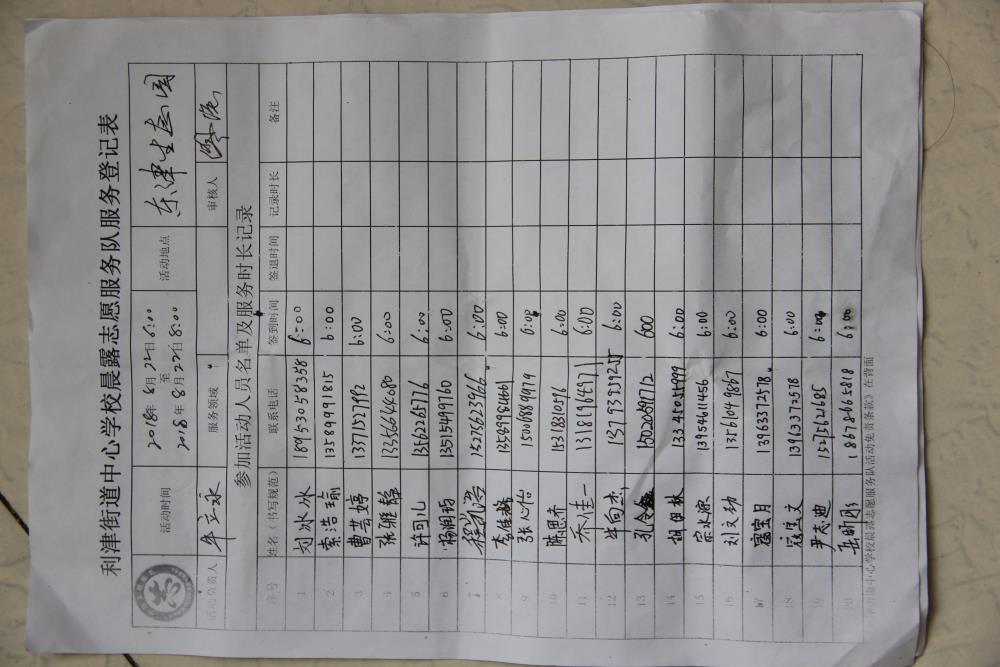 利津街道中心学校晨露志愿服务队服务登记表
活动时间 2018年8月22日6:00 至 2018年8月22日8:00 活动地点 东津生态园
活动负责人 牟立永 服务领域 审核人
参加活动人员名单及服务时长记录
序号 姓名（书写规范） 联系电话 签到时间 签退时间 记录时长 备注
1 刘冰冰 18953058358 6:00
2 索浩瑜 13589991815 6:00
3 曹芸婷 13771527992 6:00
4 张雅馨 13356646080 6:00
5 许可儿 13562265776 6:00
6 杨润钧 13515499760 6:00
7 程 15275623966 6:00
8 李佳馨 13589984661 6:00
9 张心怡 15006889979 6:00
10 陈思乔 15318310596 6:00
11 乔佳一 13181984597 6:00
12 毕向杰 13793959255 6:00
13 孔令鑫 15020691712 600
14 胡佳林 13345055999 6:00
15 宗水源 13954611456 6:00
16 刘文功 13761049867 6:00
17 寇宝月 13963372578 6:00
18 寇宝文 13963372578 6:00
19 尹天迪 15275621685 6:00
20 岳昕彤 18678665818 6:00
利津街道中心学校晨露志愿服务队活动免责条款》在背面